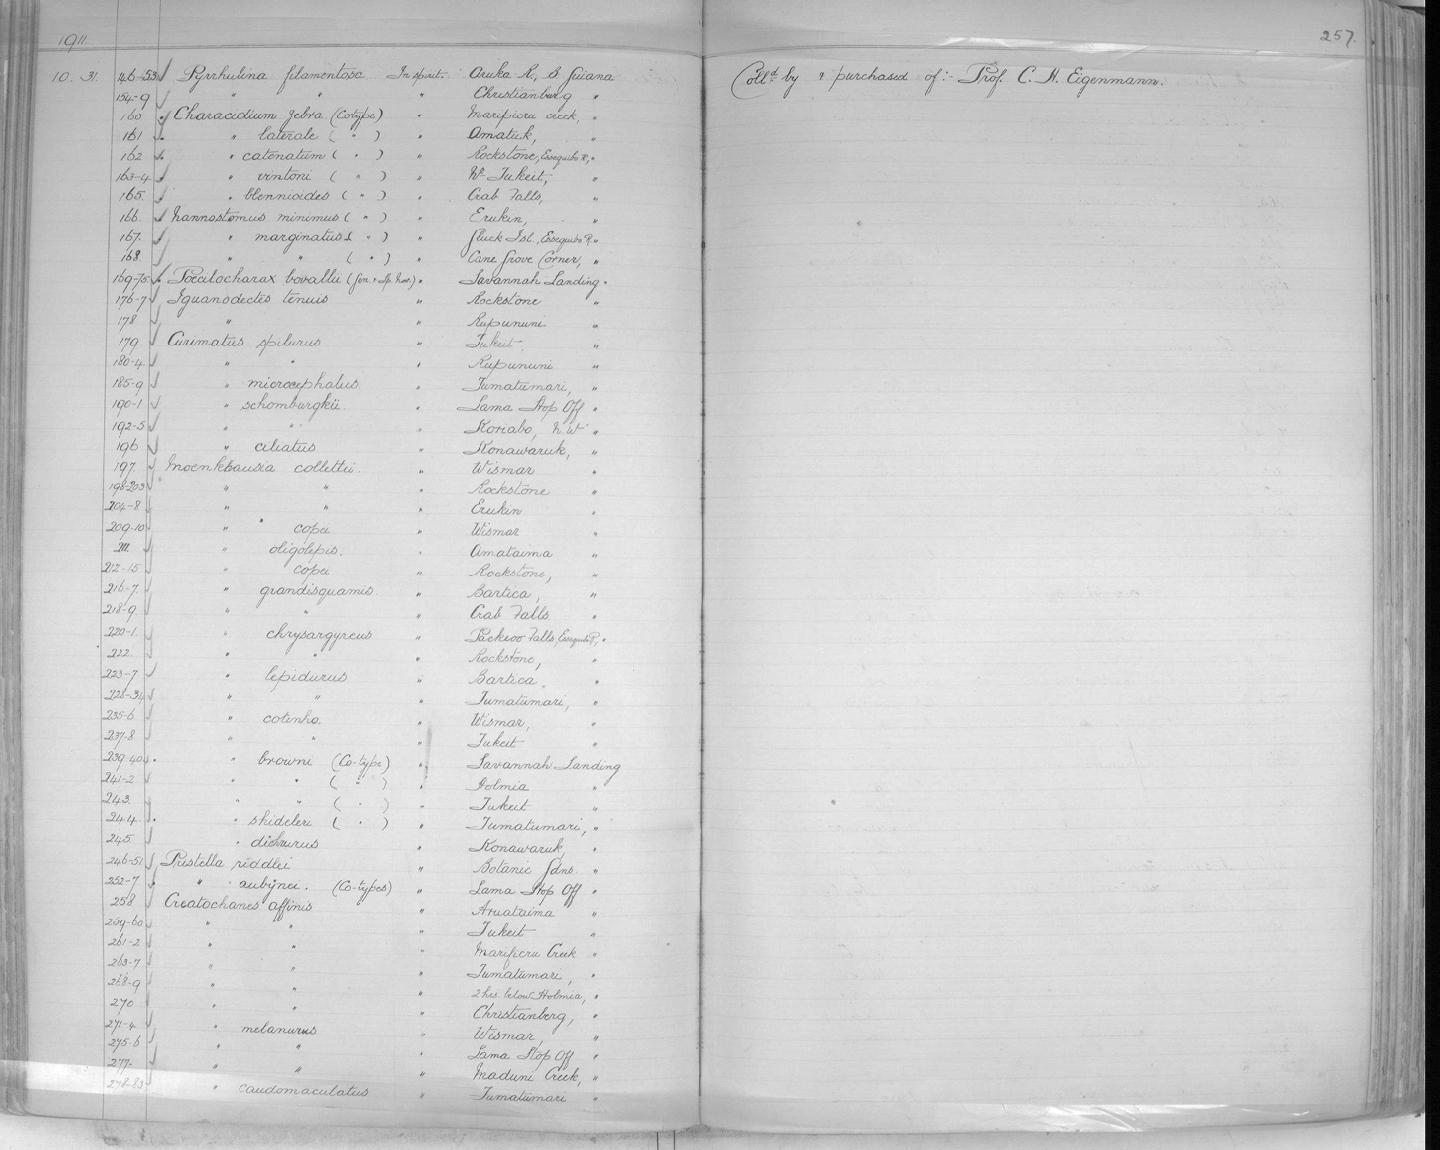 1911.
257.
10. 31. 146-53 Pyrrhulina filamentosa In spirit. Aruka R., B. Guiana Colld by & purchased of:- Prof. C. H. Eigenmann.
154-9 " " " Christianburg "
160 Characidium zebra (Cotype) " creek, "
161 " laterale ( " ) " Amatuk, "
162 " catenatum ( " ) " Rockstone, Essequibo R, "
163-4 " vintoni ( " ) " Nr Tukeit, "
165. " blennioides ( " ) " Crab Falls, "
166. Nannostomus minimus ( " ) " Erukin, "
167. " marginatus ( " ) " Gluck Isl., Essequibo R. "
168. " " ( " ) " Cane Grove Corner, "
169-75 Poecilocharax bovallii (Gen. & Sp. Nov.) " Savannah Landing "
176-7 Iguanodectes tenuis " Rockstone "
178 " " Rupununi "
179 Curimatus spilurus " Tukeit "
180-4. " " " Rupununi "
185-9 " microcephalus " Tumatumari, "
190-1 " schomburgkii " Lama Stop Off "
192-5 " " " Koriabo, N.W. "
196 " ciliatus " Konawaruk, "
197. Moenkhausia collettii. " Wismar "
198-203 " " " Rockstone "
204-8 " " " Erukin "
209-10 " copei " Wismar "
211. " oligolepis. " Amataima "
212-15 " copei " Rockstone, "
216-7. " grandisquamis. " Bartica, "
218-9. " " " Crab Falls "
220-1. " chrysargyreus " Packeoo Falls, Essequibo R, "
222. " " " Rockstone, "
223-7 " lepidurus " Bartica "
228-34 " " " Tumatumari, "
235-6 " cotinho. " Wismar, "
237-8 " " " Tukeit "
239-40 " browni (Co-type) " Savannah Landing
241-2 " " ( " ) " Holmia "
243. " " ( " ) " Tukeit "
244. " shideleri ( " ) " Tumatumari, "
245. " dichrurus " Konawaruk, "
246-51 Pristella riddlei " Botanic Gdns. "
252-7 " aubynei. (Co-types) " Lama Stop Off "
258 Creatochanes affinis " Aruataima "
259-60 " " " Tukeit "
261-2 " " " Maripicru Creek "
263-7 " " " Tumatumari, "
268-9 " " " 2 hrs. below Holmia, "
270 " " " Christianberg, "
271-4. " melanurus " Wismar, "
275-6 " " " Lama Stop Off "
277- " " " Maduni Creek, "
278-83 " caudomaculatus " Tumatumari "